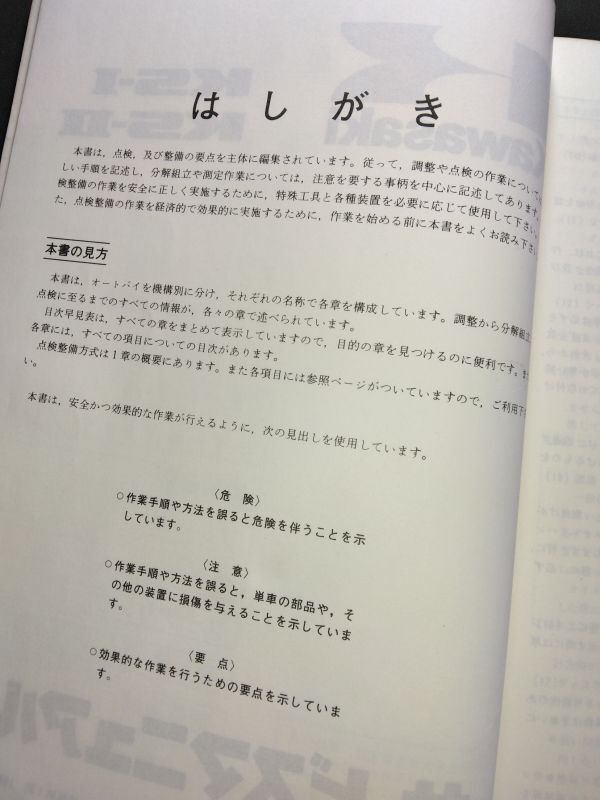 はしがき
本書は，点検，及び整備の要点を主体に編集されています。従って，調整や点検の作業につい
しい手順を記述し，分解組立や測定作業については，注意を要する事柄を中心に記述してあります。
検整備の作業を安全に正しく実施するために，特殊工具と各種装置を必要に応じて使用して下さい。
た，点検整備の作業を経済的で効果的に実施するために，作業を始める前に本書をよくお読み下さい
本書の見方
本書は，オートバイを機構別に分け，それぞれの名称で各章を構成しています。調整から分解組立，
点検に至るまでのすべての情報が，各々の章で述べられています。
目次早見表は，すべての章をまとめて表示していますので，目的の章を見つけるのに便利です。また
各章には，すべての項目についての目次があります。
点検整備方式は1章の概要にあります。また各項目には参照ページがついていますので，ご利用下さ
い。
本書は，安全かつ効果的な作業が行えるように，次の見出しを使用しています。
〈危　険〉
○作業手順や方法を誤ると危険を伴うことを示
しています。
〈注　意〉
○作業手順や方法を誤ると，単車の部品や，そ
の他の装置に損傷を与えることを示していま
す。
〈要　点〉
○効果的な作業を行うための要点を示していま
す。